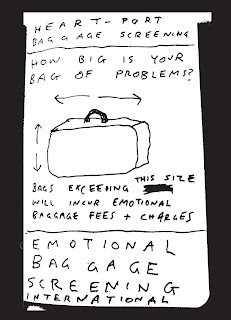 HEART-PORT
BAGGAGE SCREENING
HOW BIG IS YOUR
BAG OF PROBLEMS?
THIS SIZE
BAGS EXCEEDING
WILL INCUR EMOTIONAL
BAGGAGE FEES + CHARGES
EMOTIONAL
BAGGAGE
SCREENING
INTERNATIONAL